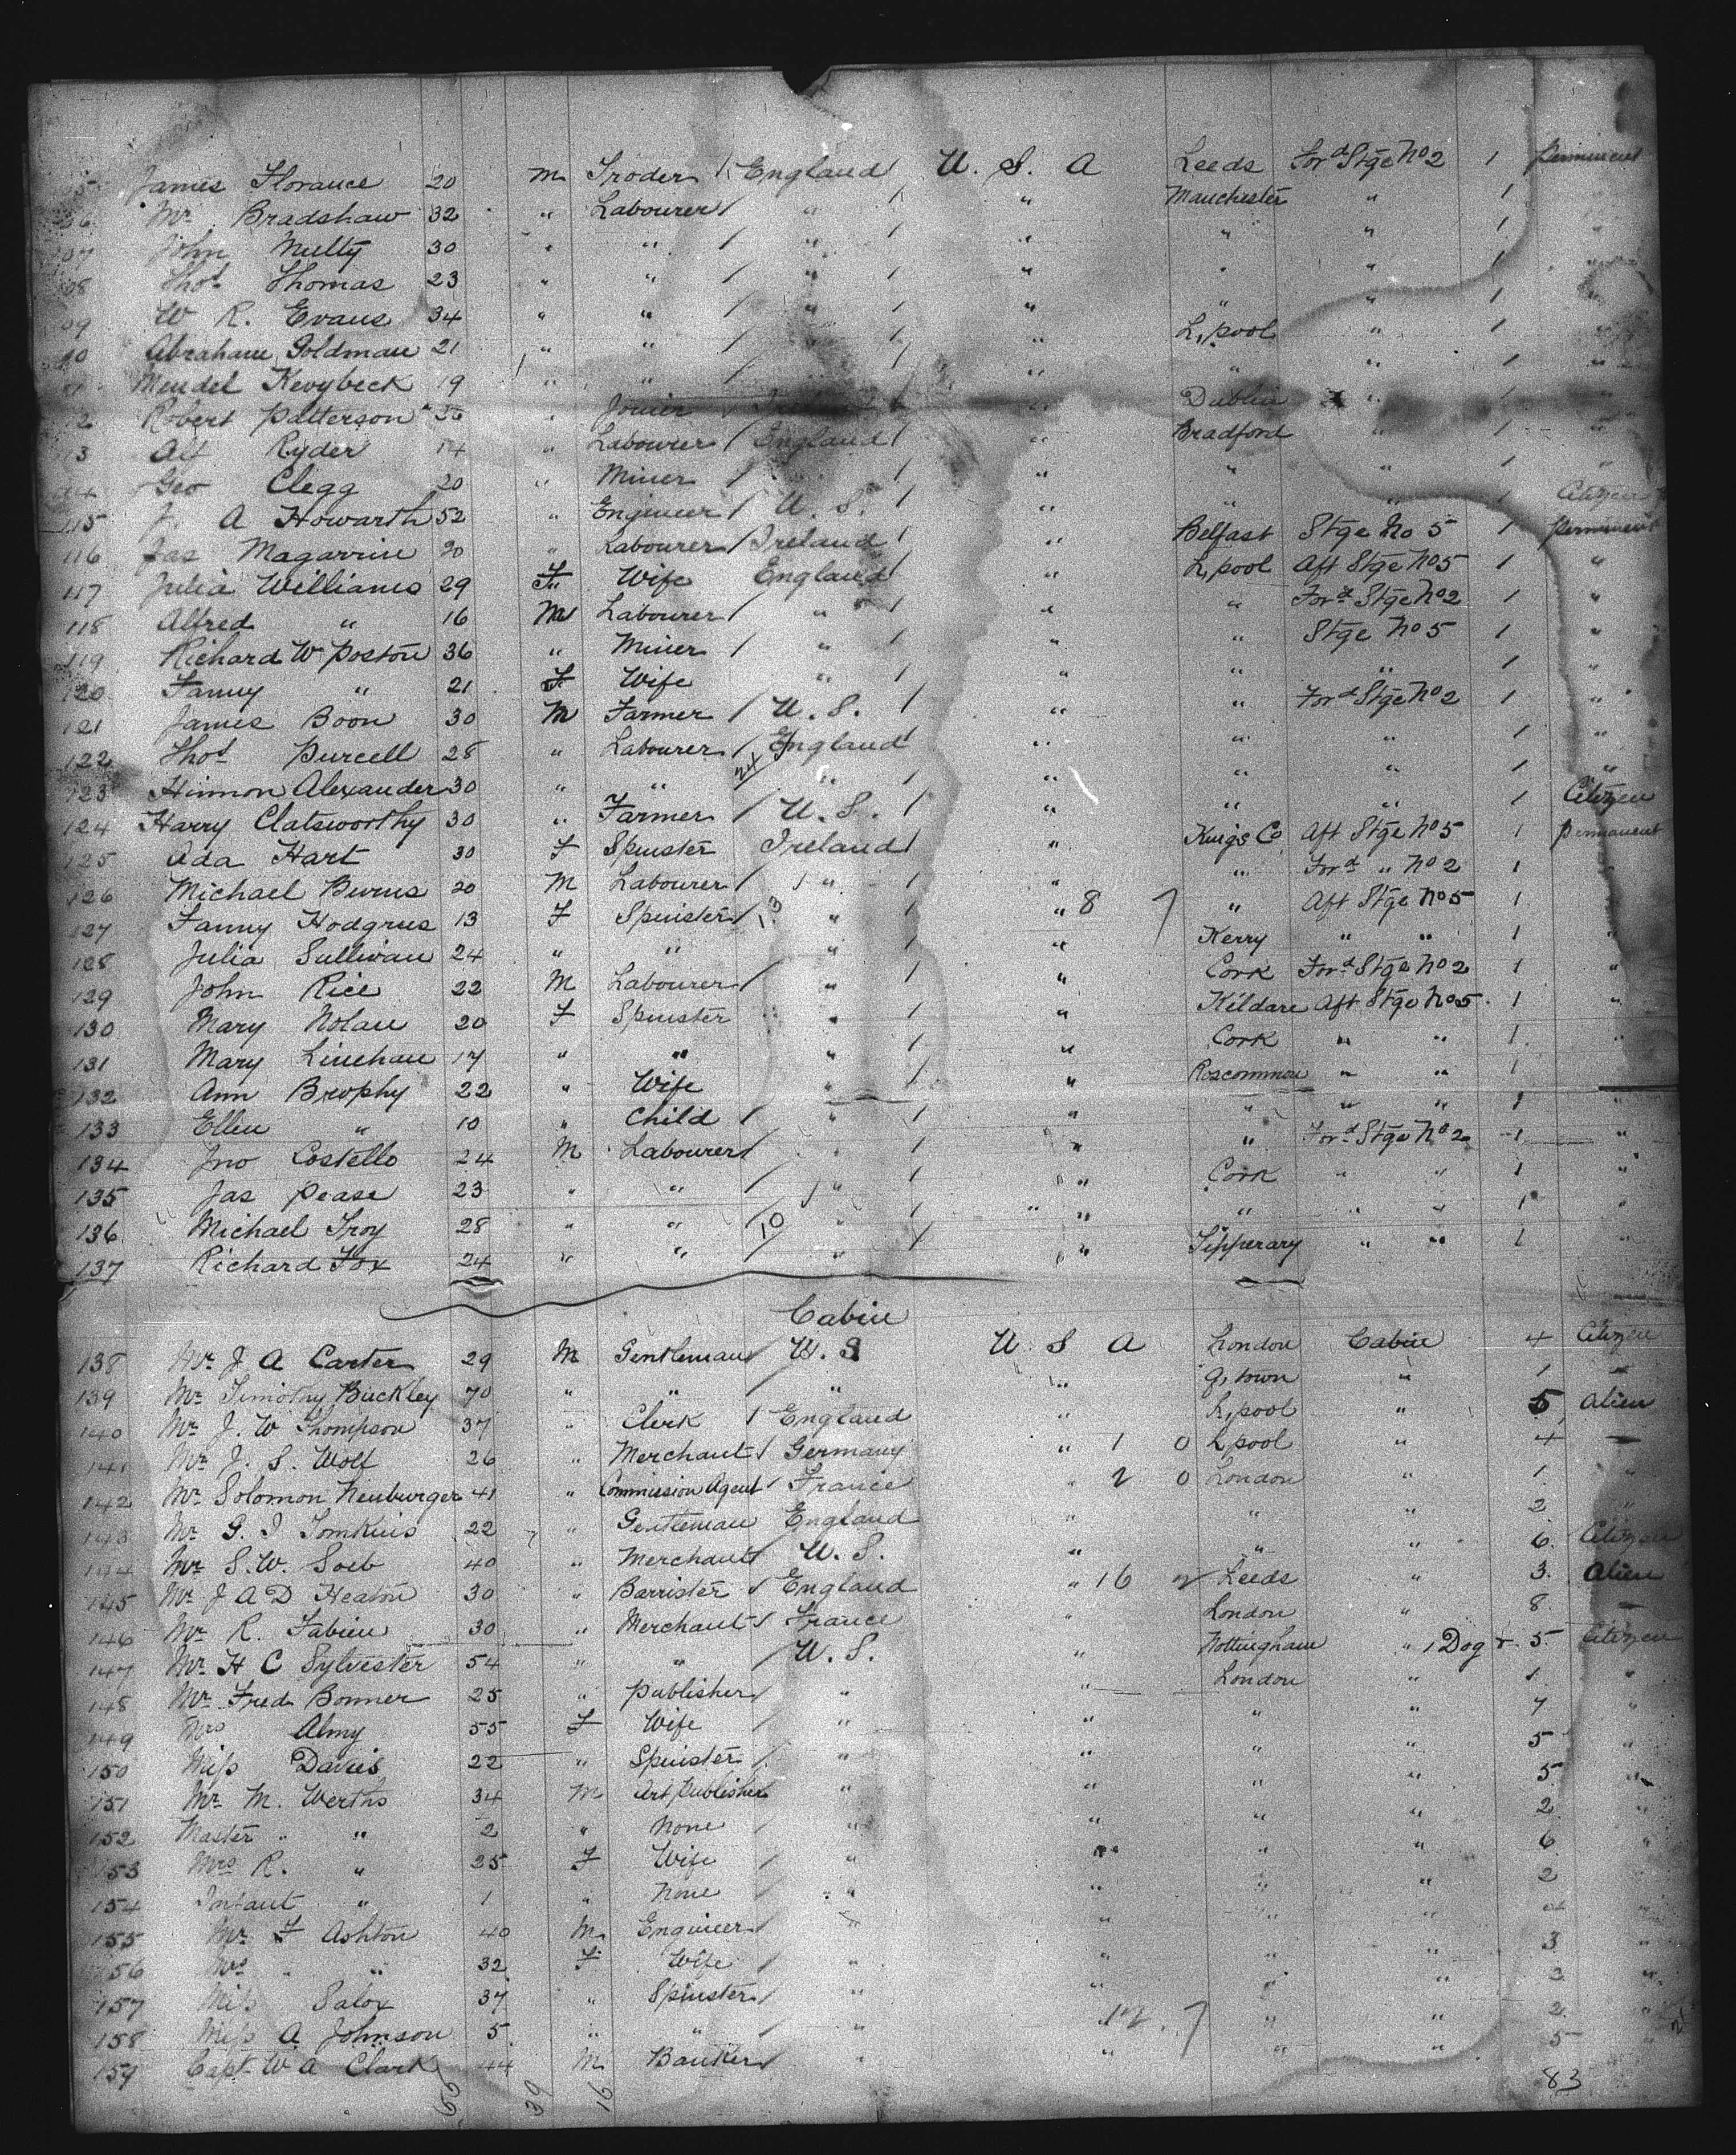 James Florance 20 m England U. S. A Leeds For'd Stge No 2 1
Mr Bradshaw 32 " Labourer " " Manchester " 1
John Multy 30 " " " " " " 1
Thos Thomas 23 " " " " " " 1
W R. Evans 34 " " " " " " 1
Abraham Goldman 21 " " " " L,pool " 1
Mendel 19 " " " " " " 1
Robert Patterson " Joiner " Dublin " 1
Alf Ryder 14 " Labourer England " Bradford " 1
Geo Clegg 20 " Miner " " " " 1 "
115 J. A Howarth 52 " Engineer U. S. " " " 1 Citizen
116 Jas Magarrin 20 " Labourer Ireland " Belfast Stge No 5 1 Perminent
117 Julia Williams 29 F Wife England " L,pool Aft Stge No 5 1 "
118 Alfred " 16 M Labourer " " " For'd Stge No 2 1 "
119 Richard W Poston 36 " Miner " " " Stge No 5 1 "
120 Fanny " 21 F Wife " " " " 1 "
121 James Boon 30 M Farmer U. S. " " For'd Stge No 2 1 "
122 Thos Purcell 28 " Labourer England " " " 1 "
123 Hinmon Alexander 30 " " 24 " " " " 1 "
124 Harry Clatsworthy 30 " Farmer U. S. " " " 1 Citizen
125 Ada Hart 30 F Spinster Ireland " Kings Co Aft Stge No 5 1 Permanent
126 Michael Burns 20 M Labourer " " " For'd " No 2 1
127 Fanny Hodgins 13 F Spinster 13 " " 8 7 " Aft Stge No 5 1
128 Julia Sullivan 24 " " " " Kerry " " 1 "
129 John Rice 22 M Labourer " " Cork For'd Stge No 2 1 "
130 Mary Nolan 20 F Spinster " " Kildare Aft Stge No 5 1 "
131 Mary Linehan 17 " " " " Cork " " 1 "
132 Ann Brophy 22 " Wife " " Roscommon " " 1
133 Ellen " 10 " Child " " " " " 1 "
134 Jno Costello 24 M Labourer " " " For'd Stge No 2 1 "
135 Jas Pease 23 " " " " Cork " " 1 "
136 Michael Troy 28 " " 10 " " " " " 1 "
137 Richard Fox 24 " " " " Tipperary " " 1 "
Cabin
138 Mr J A Carter 29 M Gentleman U. S U S A London Cabin 4 Citizen
139 Mr Timothy Buckley 70 " " " " Q,town " 1 "
140 Mr J. W Thompson 37 " Clerk England " L,pool " 5 Alien
141 Mr J. S. Wolf 26 " Merchant Germany " 1 0 L,pool " 4
142 Mr Solomon Neuburger 41 " Commission Agent France " 2 0 London " 1 "
143 Mr G. J Tomkins 22 " Gentleman England " " " 2 "
144 Mr S. W. 40 " Merchant U. S. " " " 6 Citizen
145 Mr J A D Heaton 30 " Barrister England " 16 Leeds " 3 Alien
146 Mr R. Fabien 30 " Merchant France " London " 8
147 Mr H C Sylvester 54 " " U. S. " Nottingham " 1 Dog + 5 Citizen
148 Mr Fred Bonner 25 " Publisher " " London " 1 "
149 Mrs Almy 55 F Wife " " " " 7 "
150 Miss Davis 22 " Spinster " " " " 5 "
151 Mr M. Werths 34 M Art Publisher " " " " 5 "
152 Master " " 2 " None " " " " 2 "
153 Mrs R. " 25 F Wife " " " " 6 "
154 Infant " 1 " None " " " " 2 "
155 Mr F Ashton 40 M Engineer " " " " "
156 Mrs " " 32 F Wife " " " " 3 "
157 Miss 37 " Spinster " " " " 3 "
158 Miss A Johnson 5 " " " 12 7 " " 2 "
159 Capt W A Clark 44 M Banker " " " " 5 "
39 16 83